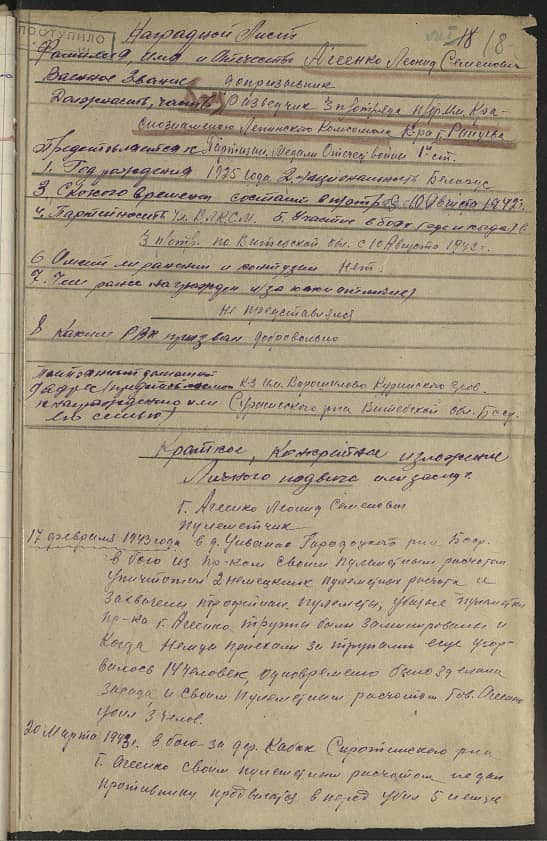 ПОСТУПИЛО
18 18
Наградной Лист
Фамилия, имя и Отчество Агеенко Леонид Семенович
Военное Звание допризывник
Должность, часть Разведчик 3 п/отряда п/бр. им. Кра-
снознаменного Ленинского Комсомола
Представляется к Партизан. Медали Отечеств. войны 1й ст.
1. Год рождения 1925 года 2. национальность Беларус
3. С какого времени состоит в п/отр. с 10 Августа 1942 г.
4. Партийность чл. В.Л.К.С.М. 5. Участие в боях (где и когда) в
3 п/отр. по Витебской обл. с 10 Августа 1942 г.
6 Имеет ли ранения и контузии Нет.
7. Чем ранее награжден (за какие отличия)
Не представлялся
8 Каким РВК призван добровольно
Постоянный домашний
адрес (представляемого к-з им. Ворошилово Куринского с/сов.
к награждению или Сиротинского р-на Витебской обл. Бсср.
его семьи)
Краткое, Конкретное изложение
Личного подвига или заслуг
т. Агеенко Леонид Семенович
пулеметчик
17 февраля 1943 года в д. Городоцкого р-на Бсср.
в бою из пр-ком своим пулеметным расчетом
уничтожил 2 немецких пулеметных расчета и
захвачены трофейные пулемета, убитые пулеметчики
пр-ка т. Агеенко трупы были заминированы и
когда немцы приехали за трупами еще угор-
вилось 14 человек, одновременно было зделана
засада и своим пулеметным расчетом тов. Агеенко
убил 3 челов.
20 Марта 1943 г. в бою за дер. Сиротинского р-на
т. Агеенко своим пулеметным расчетом не дал
противнику продвигатся в перед убил 5 немцев